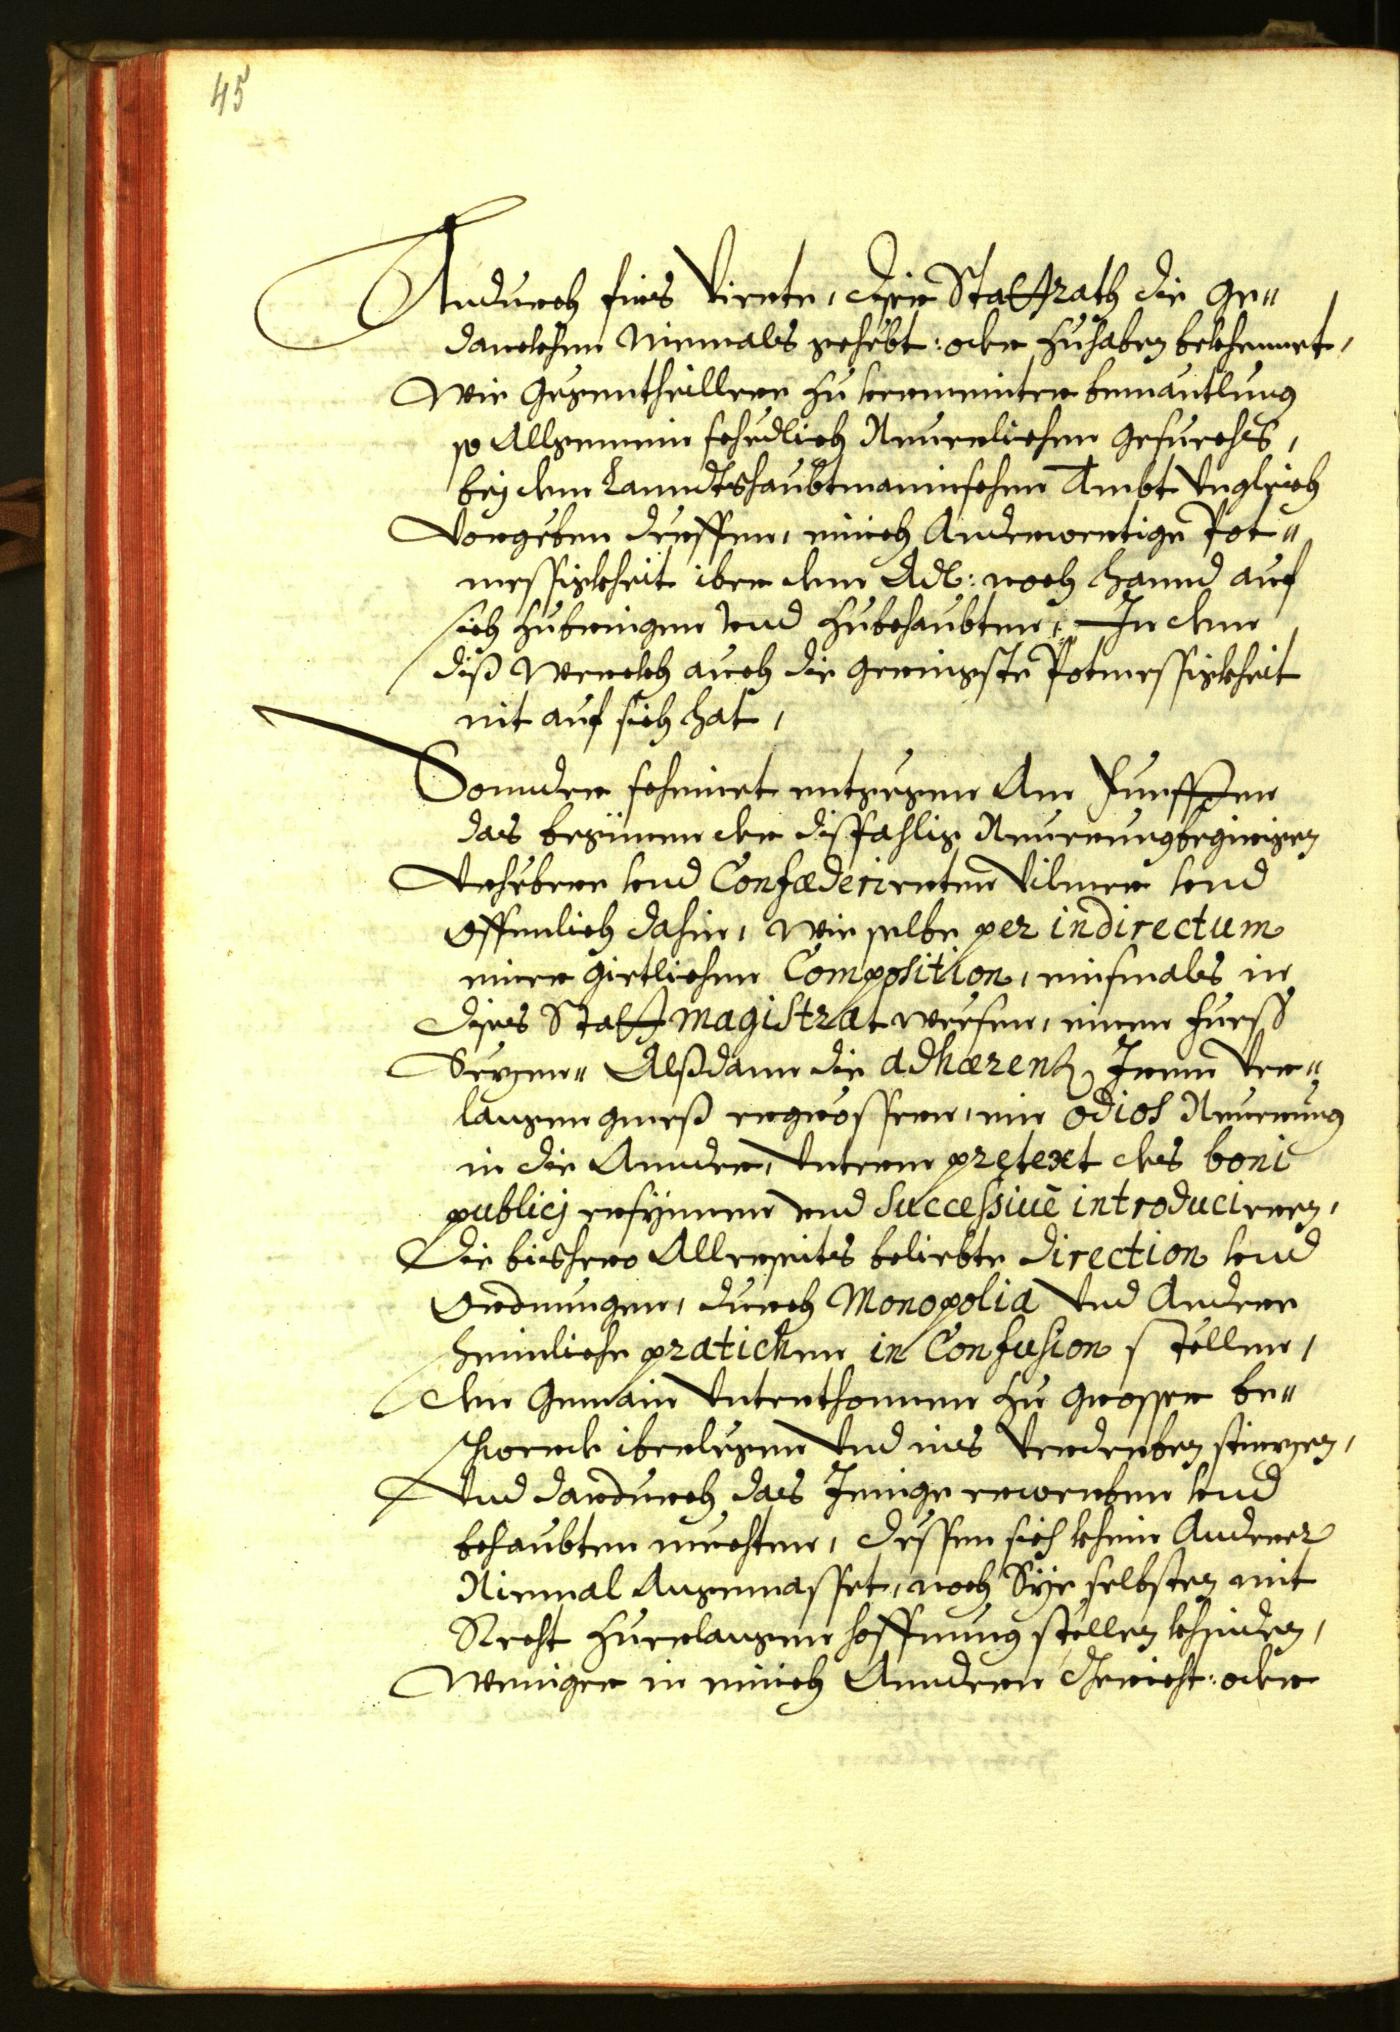 45
Andurch fürs Vierte, diser Stattrath die Ge"
danckhen Niemals gehebt: oder zuhaben bekhennet,
Wie Gegentheillern zu vermeinter bemäntlung
so Allgemein schedlich Neuerlichen Gesuechs,
bej dem Lanndtshaubtmannischen Ambt Ungleich
Vorgeben dürffen, einich Anderwertige Pot"
messigkheit iber den Adl: noch Hannd auf
sich zubringen vnd zubehaubten, In deme
diß Werckh auch die Geringste Potmessigkheit
nit auf sich hat,
Sonnder scheinet entgegen Am Funfften
das beginnen der dißfahlig Neuerungbegirigen
Vrhebern vnd Confœderierten Vilmer vnd
offenlich dahin, Wie selbe per indirectum
einer Gietlichen Composition, einsmals in
dises Statt Magistrat werfen, einen Fueß
Sezen" Alßdann die adhærenz Irem Ver"
langen gmeß ergrössern, ein odios Neuerung
in die Annder, Unterm prętext des boni
publicj ersinnen vnd Successivè introducieren,
Die bishero Allerseits beliebte direction vnd
Ordnungen, durch Monopolia Und Andere
heimliche pratickhen in Confusion stellen,
den Gemain Unterthonnen zu Grosser be"
schwerde iberlegen Und ins Verderben stirzen,
Und dardurch das Jenige erwerben vnd
behaubten mechten, dessen sich khein Anderer
Niemal Angemasset, noch Sye selbsten mit
Recht zuerlangen hoffnung stellen khinden,
Weniger in einich Anndern Gericht: oder